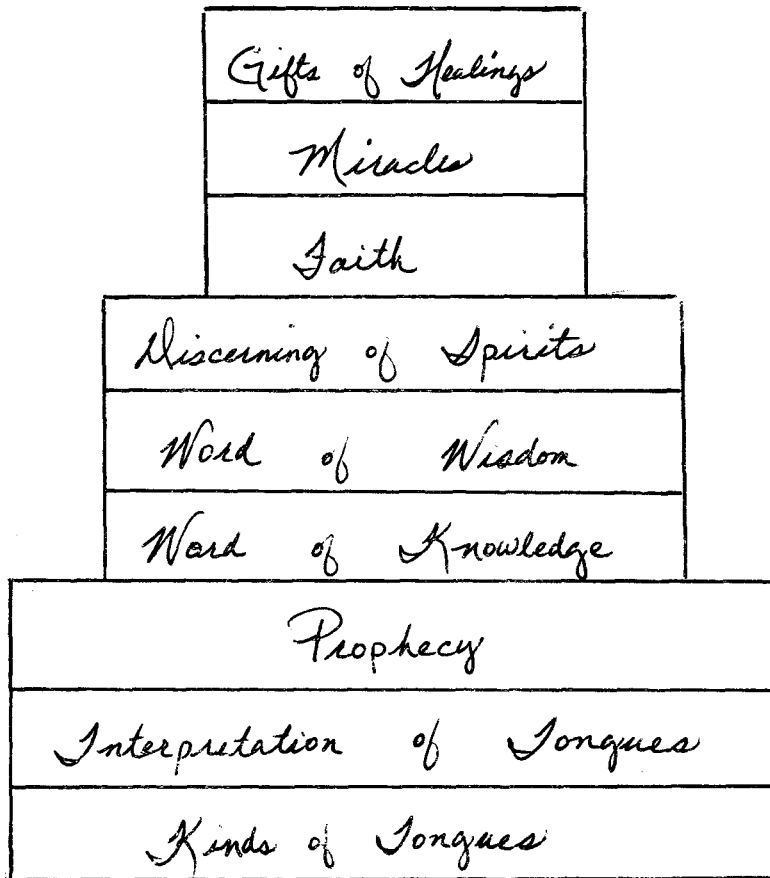 Gifts of Healings
Miracles
Faith
Discerning of Spirits
Word of Wisdom
Word of Knowledge
Prophecy
Interpretation of Tongues
Kinds of Tongues